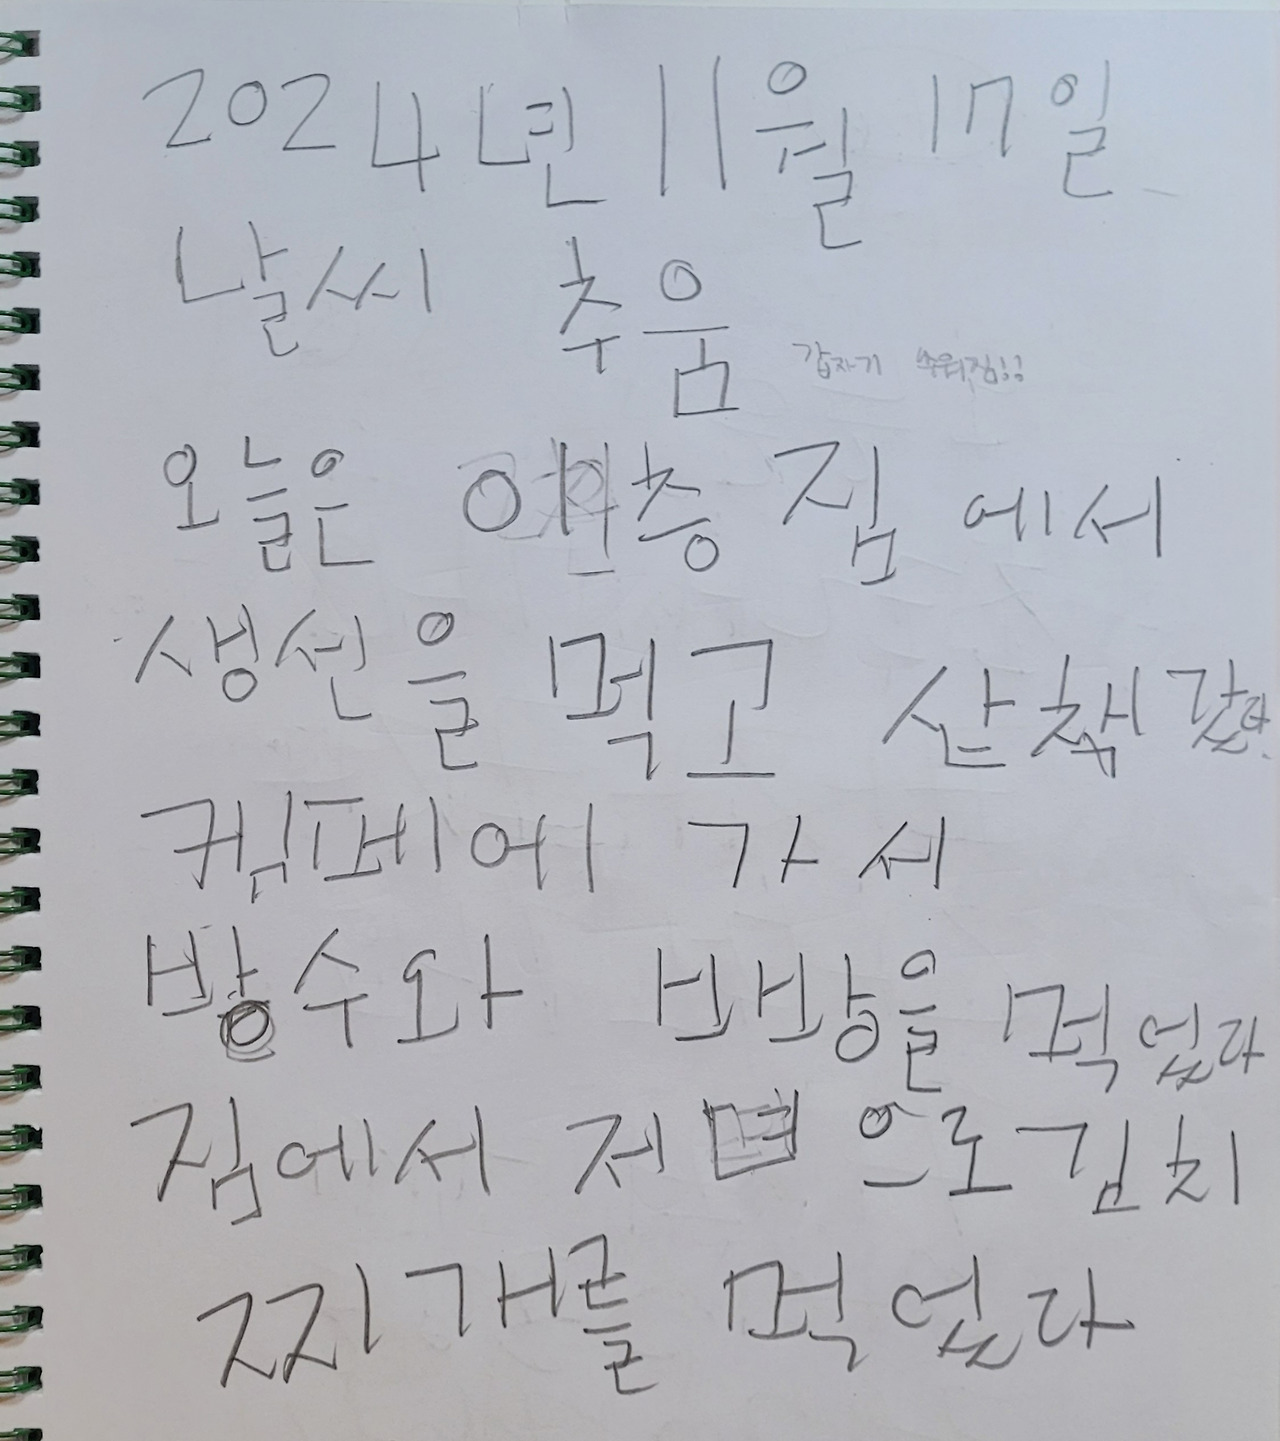 2024년 11월 17일
날씨 추움
갑자기 추워짐!!
오늘은 집에서
생선을 먹고 산책 갔다.
가서
방수와 보방을 먹었다
집에서 저녁으로 김치
찌개를 먹었다